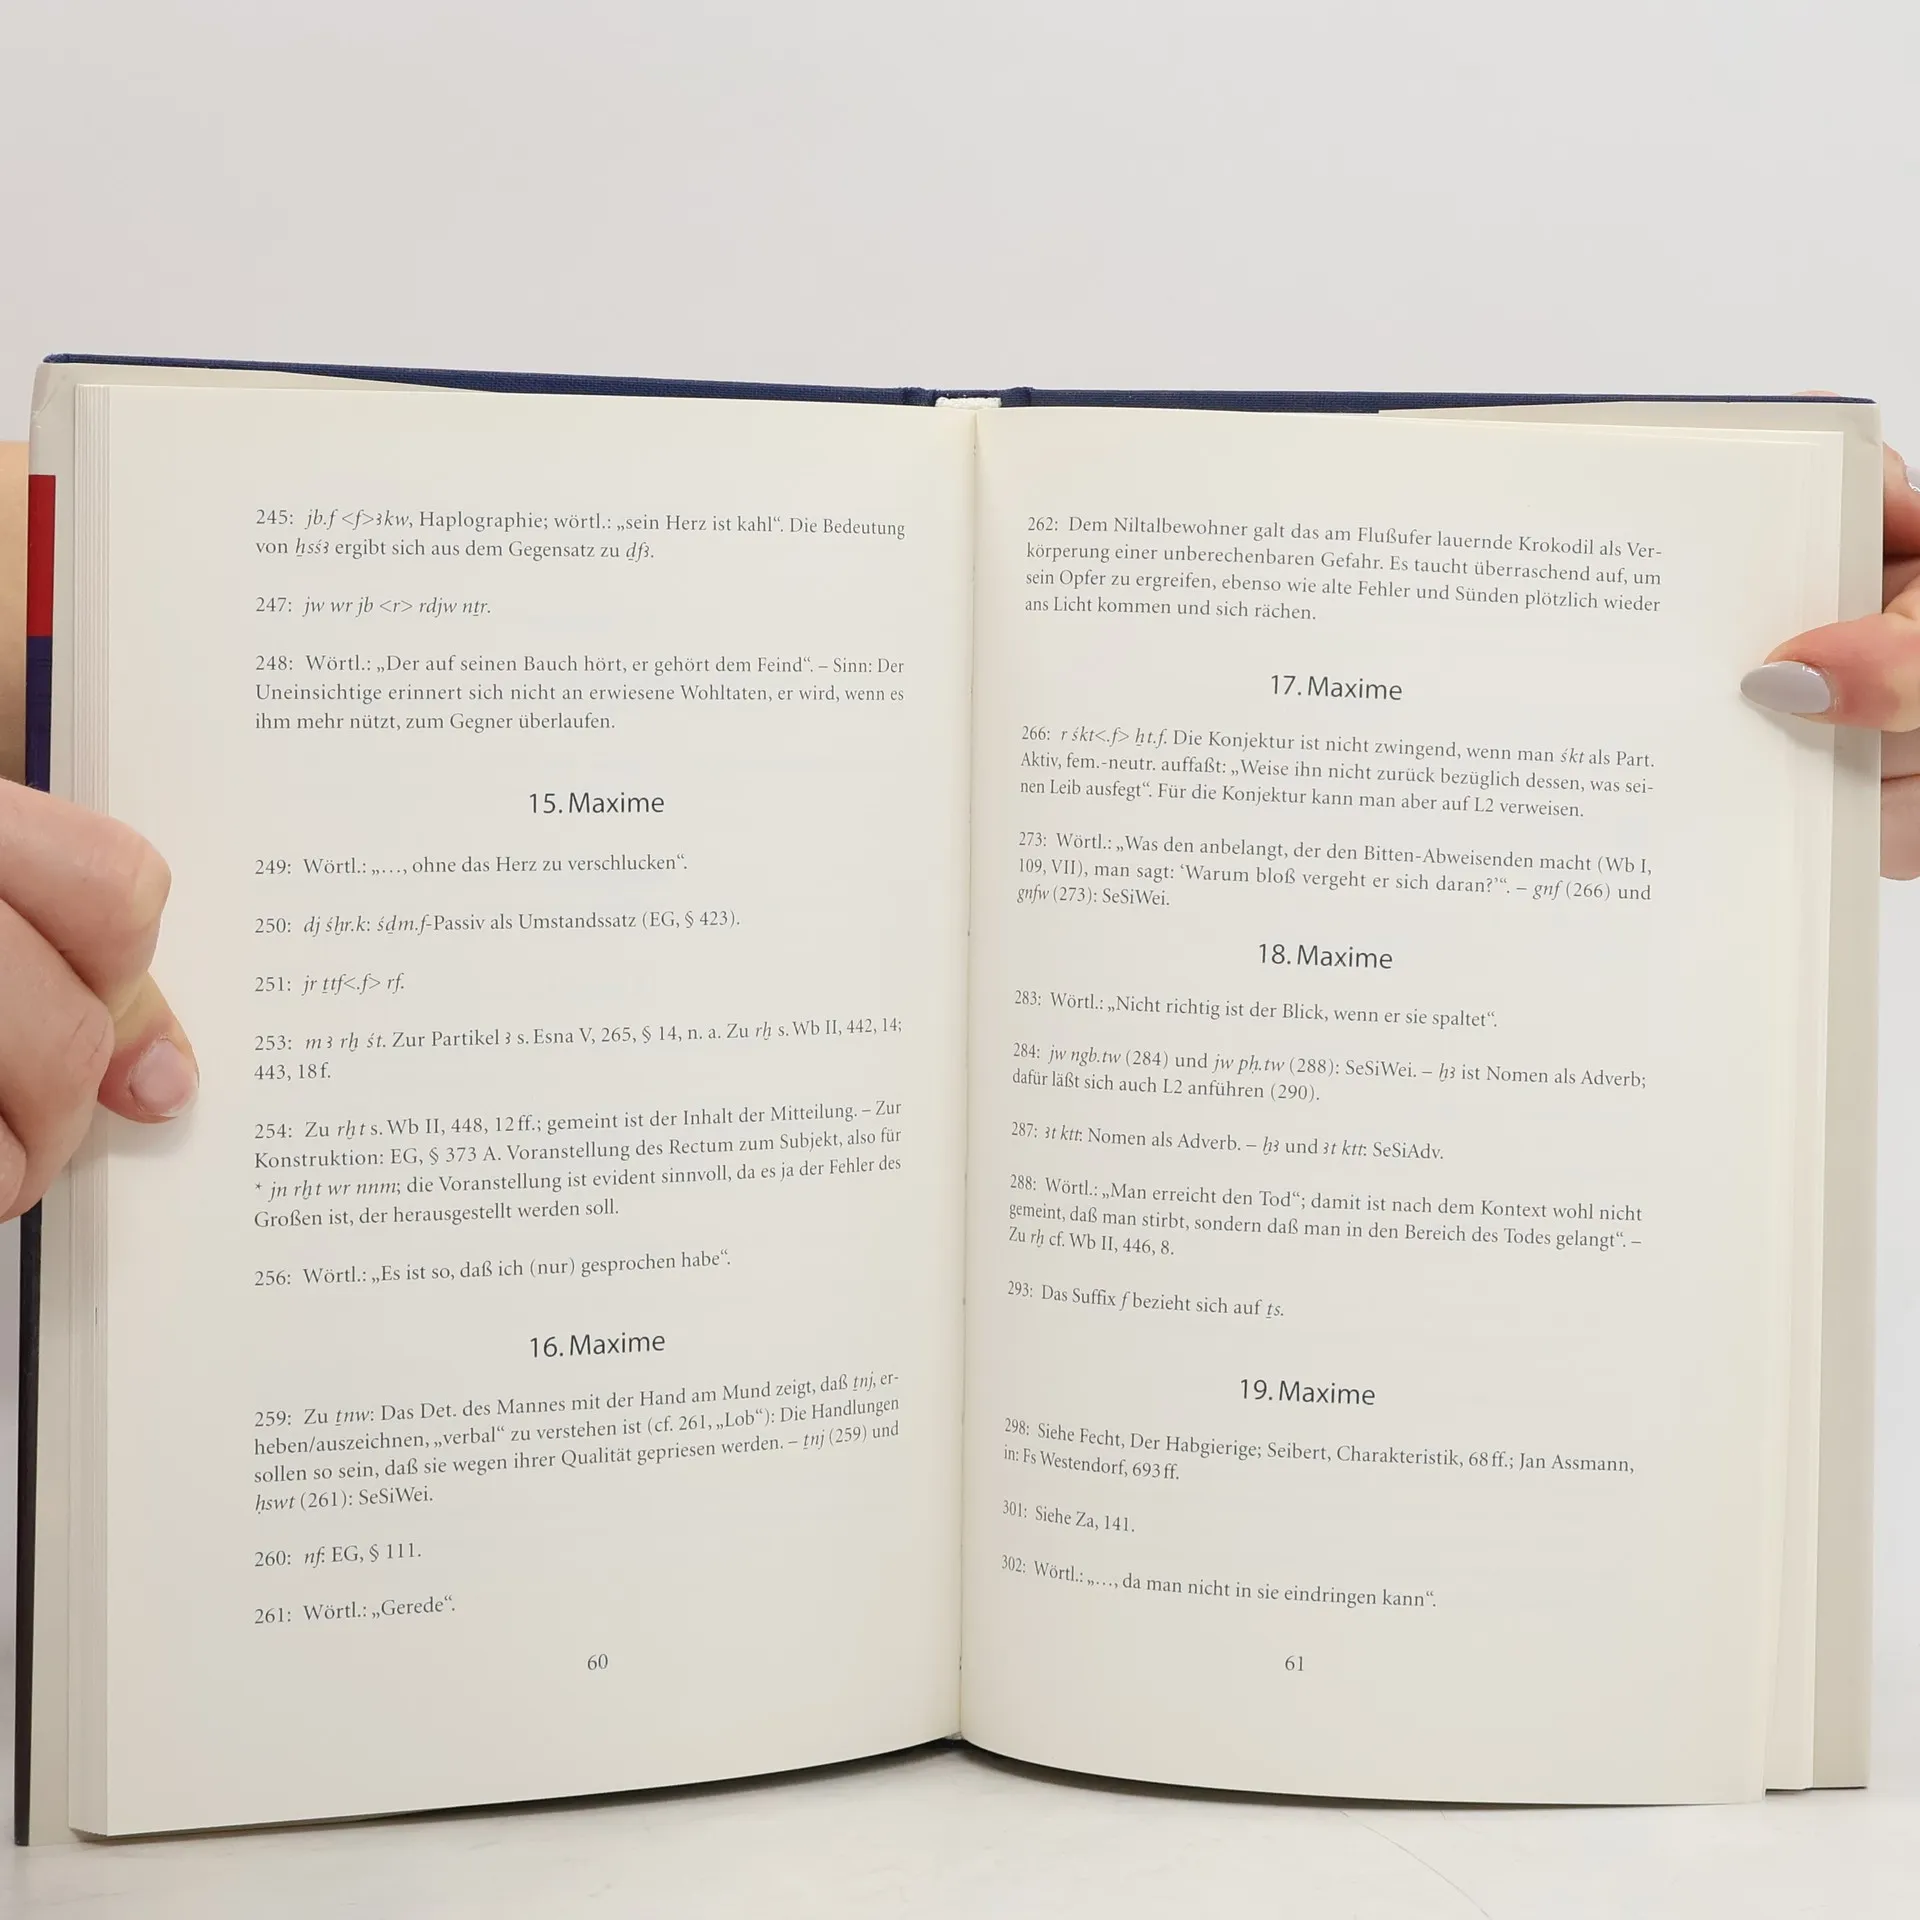 245: jb.f <f>ꜣkw, Haplographie; wörtl.: „sein Herz ist kahl“. Die Bedeutung
von ẖsśꜣ ergibt sich aus dem Gegensatz zu ḏfꜣ.
247: jw wr jb <r> rdjw nṯr.
248: Wörtl.: „Der auf seinen Bauch hört, er gehört dem Feind“. – Sinn: Der
Uneinsichtige erinnert sich nicht an erwiesene Wohltaten, er wird, wenn es
ihm mehr nützt, zum Gegner überlaufen.
15. Maxime
249: Wörtl.: „…, ohne das Herz zu verschlucken“.
250: dj śḫr.k: śḏm.f-Passiv als Umstandssatz (EG, § 423).
251: jr ṯtf<.f> rf.
253: m ꜣ rḫ śt. Zur Partikel ꜣ s. Esna V, 265, § 14, n. a. Zu rḫ s. Wb II, 442, 14;
443, 18 f.
254: Zu rḫt s. Wb II, 448, 12 ff.; gemeint ist der Inhalt der Mitteilung. – Zur
Konstruktion: EG, § 373 A. Voranstellung des Rectum zum Subjekt, also für
* jn rḫt wr nnm; die Voranstellung ist evident sinnvoll, da es ja der Fehler des
Großen ist, der herausgestellt werden soll.
256: Wörtl.: „Es ist so, daß ich (nur) gesprochen habe“.
16. Maxime
259: Zu ṯnw: Das Det. des Mannes mit der Hand am Mund zeigt, daß ṯnj, er-
heben/auszeichnen, „verbal“ zu verstehen ist (cf. 261, „Lob“): Die Handlungen
sollen so sein, daß sie wegen ihrer Qualität gepriesen werden. – ṯnj (259) und
ḥswt (261): SeSiWei.
260: nf: EG, § 111.
261: Wörtl.: „Gerede“.
60
262: Dem Niltalbewohner galt das am Flußufer lauernde Krokodil als Ver-
körperung einer unberechenbaren Gefahr. Es taucht überraschend auf, um
sein Opfer zu ergreifen, ebenso wie alte Fehler und Sünden plötzlich wieder
ans Licht kommen und sich rächen.
17. Maxime
266: r śkt<.f> ẖt.f. Die Konjektur ist nicht zwingend, wenn man śkt als Part.
Aktiv, fem.-neutr. auffaßt: „Weise ihn nicht zurück bezüglich dessen, was sei-
nen Leib ausfegt“. Für die Konjektur kann man aber auf L2 verweisen.
273: Wörtl.: „Was den anbelangt, der den Bitten-Abweisenden macht (Wb I,
109, VII), man sagt: ‘Warum bloß vergeht er sich daran?’“. – gnf (266) und
gnfw (273): SeSiWei.
18. Maxime
283: Wörtl.: „Nicht richtig ist der Blick, wenn er sie spaltet“.
284: jw ngb.tw (284) und jw pḥ.tw (288): SeSiWei. – ḫꜣ ist Nomen als Adverb;
dafür läßt sich auch L2 anführen (290).
287: ꜣt ktt: Nomen als Adverb. – ḫꜣ und ꜣt ktt: SeSiAdv.
288: Wörtl.: „Man erreicht den Tod“; damit ist nach dem Kontext wohl nicht
gemeint, daß man stirbt, sondern daß man in den Bereich des Todes gelangt“. –
Zu rḫ cf. Wb II, 446, 8.
293: Das Suffix f bezieht sich auf ṯs.
19. Maxime
298: Siehe Fecht, Der Habgierige; Seibert, Charakteristik, 68 ff.; Jan Assmann,
in: Fs Westendorf, 693 ff.
301: Siehe Za, 141.
302: Wörtl.: „…, da man nicht in sie eindringen kann“.
61